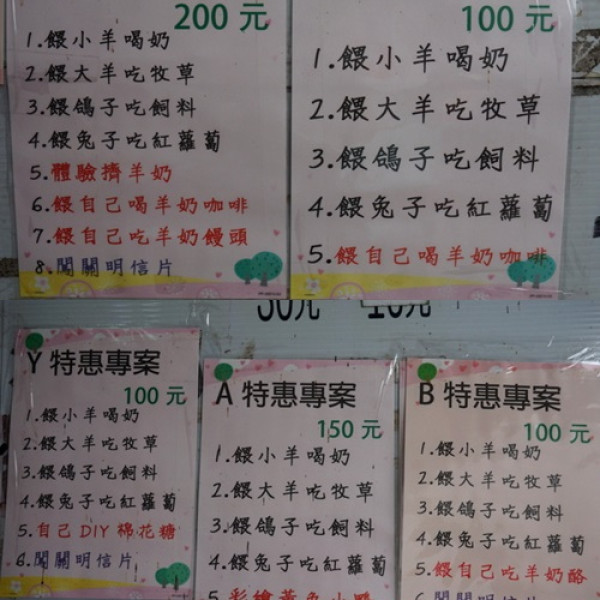 200 元
1.餵小羊喝奶
2.餵大羊吃牧草
3.餵鴿子吃飼料
4.餵兔子吃紅蘿蔔
5.體驗擠羊奶
6.餵自己喝羊奶咖啡
7.餵自己吃羊奶饅頭
8.闖關明信片
100 元
1.餵小羊喝奶
2.餵大羊吃牧草
3.餵鴿子吃飼料
4.餵兔子吃紅蘿蔔
5.餵自己喝羊奶咖啡
Y 特惠專案
100 元
1.餵小羊喝奶
2.餵大羊吃牧草
3.餵鴿子吃飼料
4.餵兔子吃紅蘿蔔
5.自己 DIY 棉花糖
6.闖關明信片
A 特惠專案
150 元
1.餵小羊喝奶
2.餵大羊吃牧草
3.餵鴿子吃飼料
4.餵兔子吃紅蘿蔔
5.彩繪黃色小鴨
B 特惠專案
100 元
1.餵小羊喝奶
2.餵大羊吃牧草
3.餵鴿子吃飼料
4.餵兔子吃紅蘿蔔
5.餵自己吃羊奶酪
6.闖關明信片